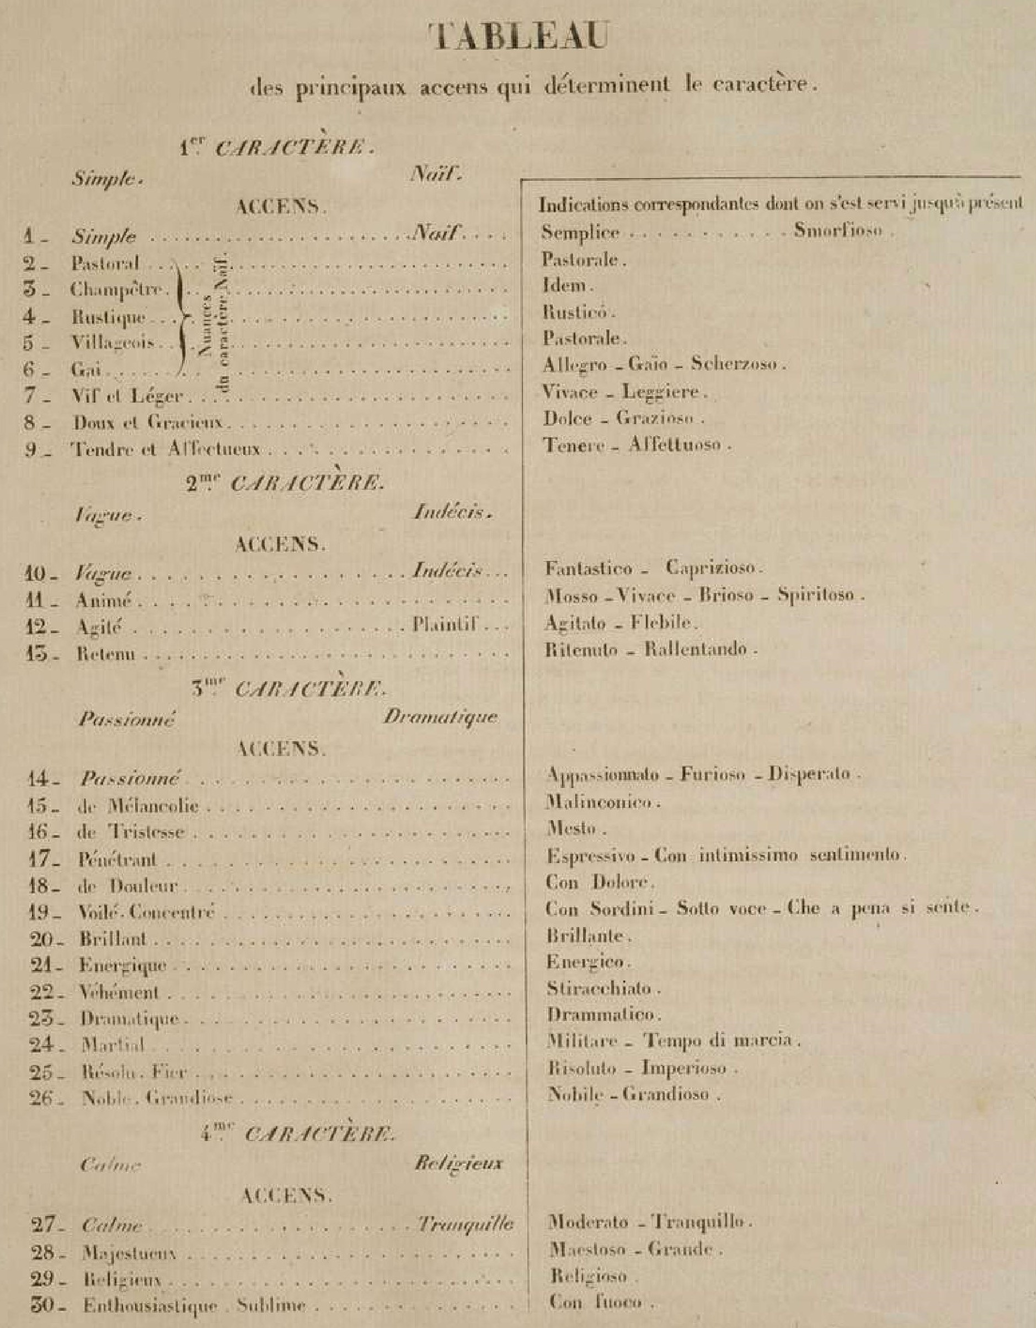 TABLEAU
des principaux accens qui déterminent le caractère.
1er CARACTÈRE.
Simple. Naïf.
ACCENS. Indications correspondantes dont on s'est servi jusqu'à présent
1 - Simple Naïf. Semplice Smorfioso.
2 - Pastoral Pastorale.
3 - Champêtre. Idem.
4 - Rustique Rustico.
5 - Villageois Pastorale.
6 - Gai Allegro - Gaio - Scherzoso.
Nuances du caractère Naïf.
7 - Vif et Léger Vivace - Leggiere.
8 - Doux et Gracieux Dolce - Grazioso.
9 - Tendre et Affectueux Tenere - Affettuoso.
2me CARACTÈRE.
Vague. Indécis.
ACCENS.
10 - Vague Indécis Fantastico - Caprizioso.
11 - Animé Mosso - Vivace - Brioso - Spiritoso.
12 - Agité Plaintif Agitato - Flebile.
13 - Retenu Ritenuto - Rallentando.
3me CARACTÈRE.
Passionné Dramatique
ACCENS.
14 - Passionné Appassionnato - Furioso - Disperato.
15 - de Mélancolie Malinconico.
16 - de Tristesse Mesto.
17 - Pénétrant Espressivo - Con intimissimo sentimento.
18 - de Douleur Con Dolore.
19 - Voilé. Concentré Con Sordini - Sotto voce - Che a pena si sente.
20 - Brillant Brillante.
21 - Energique Energico.
22 - Véhément Stiracchiato.
23 - Dramatique Drammatico.
24 - Martial Militare - Tempo di marcia.
25 - Résolu. Fier Risoluto - Imperioso.
26 - Noble. Grandiose Nobile - Grandioso.
4me CARACTÈRE.
Calme Religieux
ACCENS.
27 - Calme Tranquille Moderato - Tranquillo.
28 - Majestueux Maestoso - Grande.
29 - Religieux Religioso.
30 - Enthousiastique. Sublime Con fuoco.